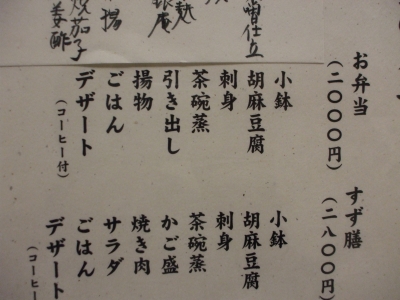 お弁当
(二〇〇〇円)
小鉢
胡麻豆腐
刺身
茶碗蒸
引き出し
揚物
ごはん
デザート
(コーヒー付)
すず膳
(二八〇〇円)
小鉢
胡麻豆腐
刺身
茶碗蒸
かご盛
焼き肉
サラダ
ごはん
デザート
(コーヒー
噌仕立
麩
銀庵
揚
焼茄子
姜酢